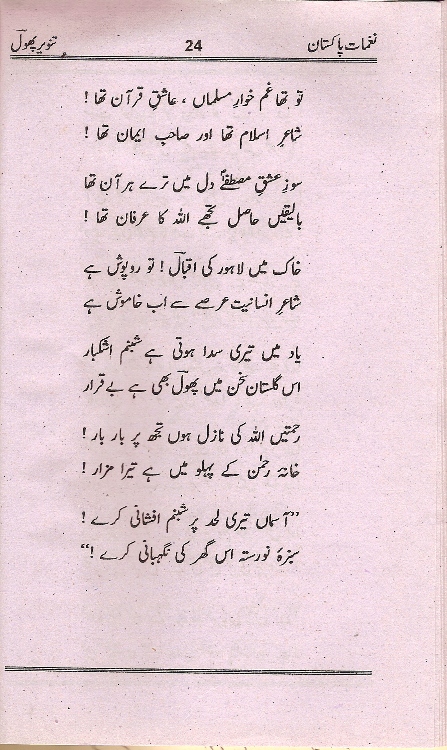 نغماتِ پاکستان 24 تنویر پھولؔ
تو تھا غم خوارِ مسلماں ، عاشقِ قرآن تھا !
شاعرِ اسلام تھا اور صاحبِ ایمان تھا !
سوزِ عشقِ مصطفےٰؐ دل میں ترے ہر آن تھا
بالیقیں حاصل تجھے اللہ کا عرفان تھا !
خاک میں لاہور کی اقبالؔ ! تو روپوش ہے
شاعرِ انسانیت عرصے سے اب خاموش ہے
یاد میں تیری سدا ہوتی ہے شبنم اشکبار
اس گلستانِ سخن میں پھولؔ بھی ہے بے قرار
رحمتیں اللہ کی نازل ہوں تجھ پر بار بار !
خانۂ رحمٰن کے پہلو میں ہے تیرا مزار !
”آسماں تیری لحد پر شبنم افشانی کرے !
سبزۂ نورستہ اس گھر کی نگہبانی کرے !“